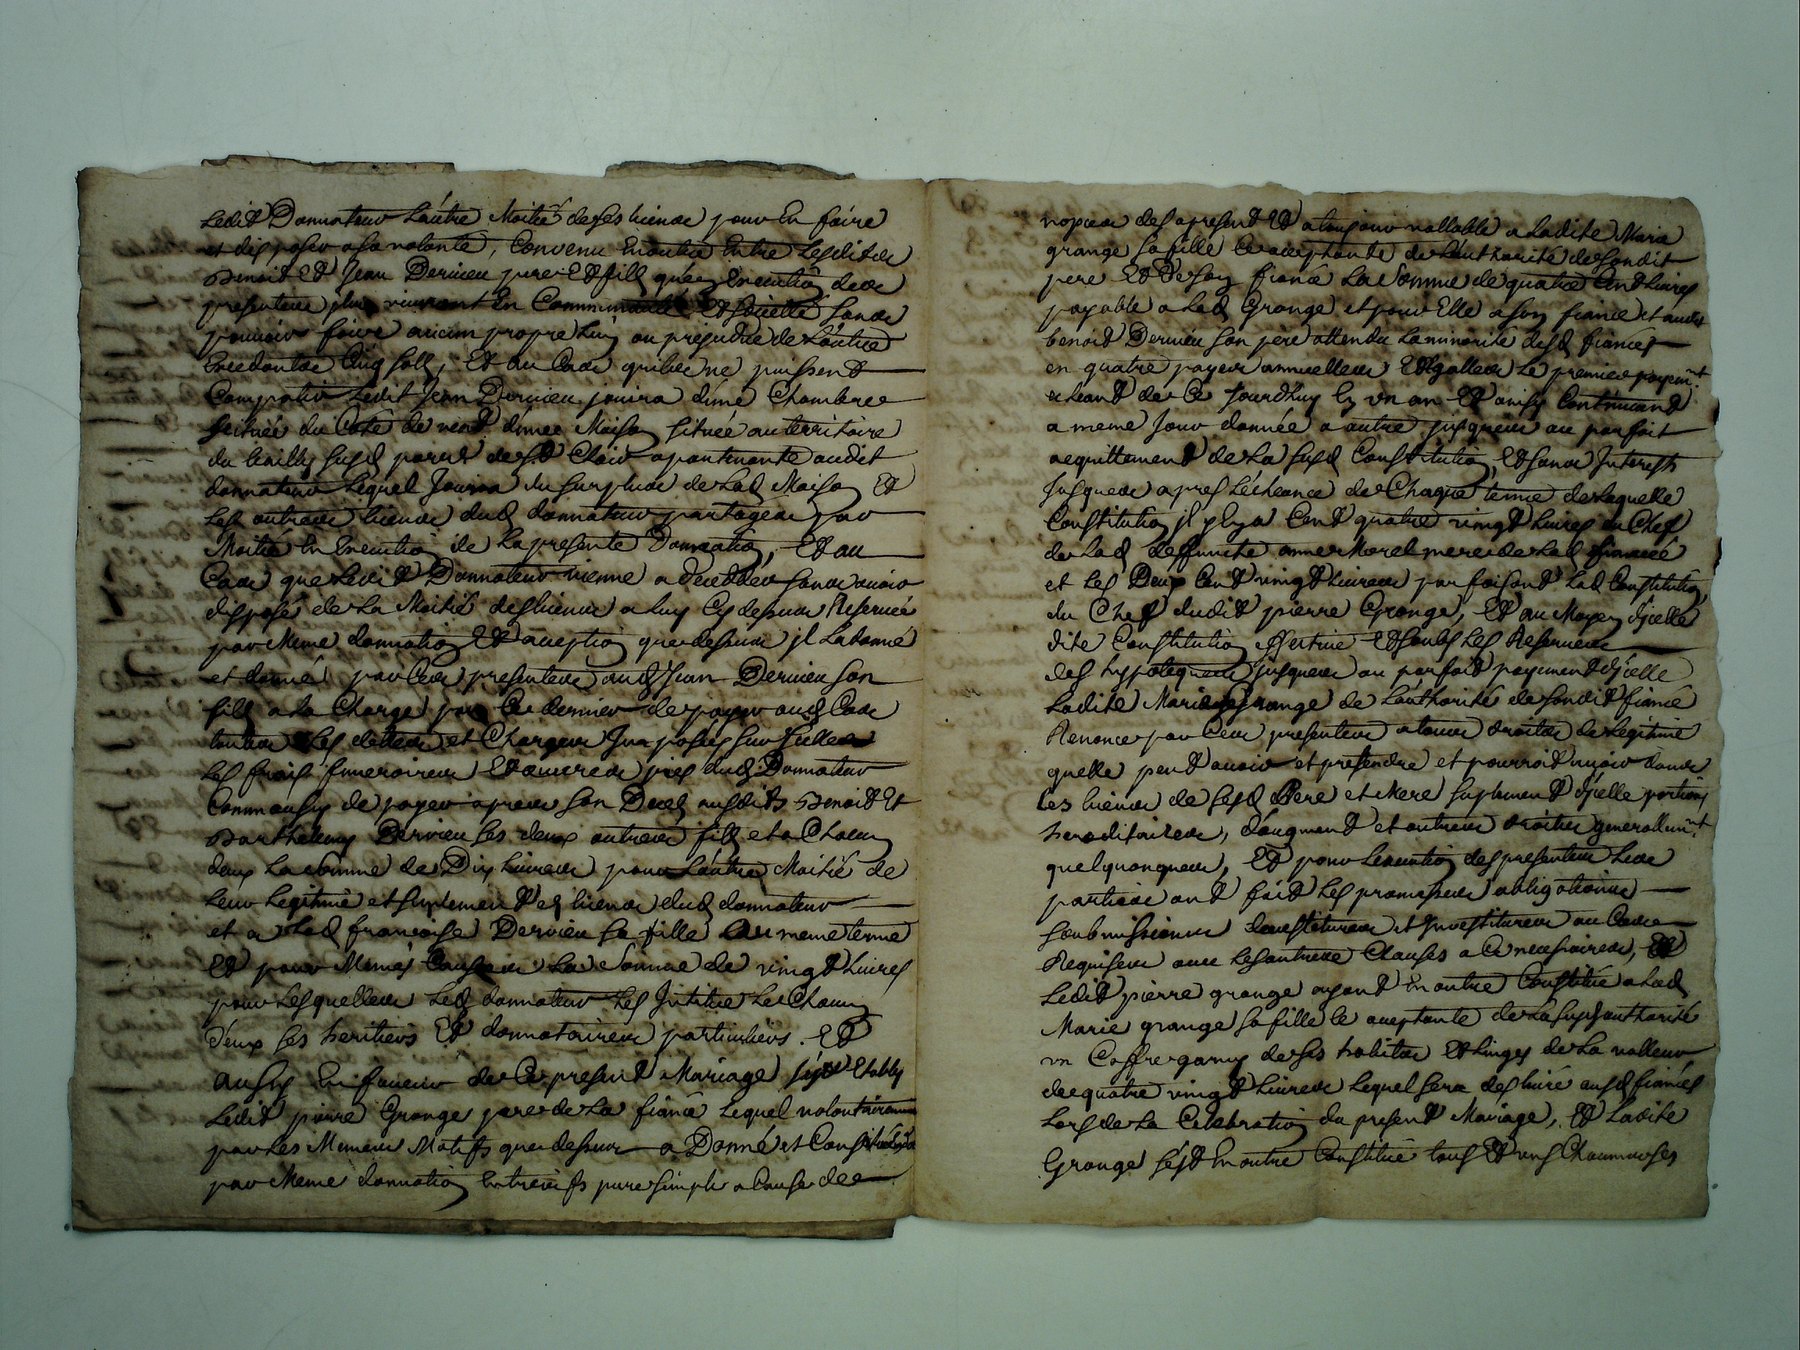 Ledit Donnateur L'autre Moitié de ses biens pour En faire
et disposer a sa volonté, Convenu En outre Entre Lesdits
Benoit Et Jean Dervieu pere Et fils qu'en Execution des
presentes vivront En Communauté Et Societté sans
pouvoir faire aucun propre Lun au prejudice de L'autre
Excedantes Cinq sols, Et au Cas qu'ils ne puissent
Compatir Ledit Jean Dervieu jouira d'une Chambre
scituée du Coté de vend d'une Maison située au territoire
du susd parr de St Clair apartenante audit
donnateur Lequel Jouira du surplus de Lad Maison Et
Les autres biens dud donnateur partagés par
Moitié En Execution de La presente Donnation, Et au
Cas que Ledit Donnateur vienne a deceder sans avoir
disposé de La Moitié des biens a Luy Cy dessus Reservée
par Meme donnation Et que dessus jl La donné
et donne par Ces presentes aud Jean Dervieu son
fils a la Charge par Ce dernier de payer aud Cas
toutes Les dettes et Charges Imposées sur Jcelles
Les frais funeraires Et dud Donnateur
Comm'aussy de payer apres son Deces ausdits Benoit Et
Barthelemy Dervieu ses deux autres fils et a Chacun
deux La somme de Dix Livres pour L'autre Moitié de
Leur Legitime et suplement des biens dud donnateur
et a Lad francoise Dervieu sa fille au meme terme
Et pour Memes Causes La Somme de vingt Livres
pour Lesquelles Led donnateur Les Jnstitue Les Chacun
d'eux ses heritiers Et donnataires particuliers. Et
aussy En faveur de Ce present Mariage s'est Etably
Ledit pierre Grange pere de La fiancé Lequel volontairement
par Les Memes Motifs que dessus a Donné et Constitué
par Meme donnation Entrevifs pure simple a Cause de
nopces des apresent Et a toujour vallable a Ladite Marie
grange sa fille Ce acceptante de L'authorité de sondit
pere Et de son fiancé La Somme de quatre Cent Livres
payable a Lad Grange et pour Elle a son fiancé et audit
benoit Dervieu son père attendu La minorité desd fiancés
en quatre payes annuelles Et Egalles Le premier payemt
echeant de Ce Jourdhuy En un an Et ainsy Continuant
a meme Jour d'année a autre jusques au parfait
acquittement de La susd Constitution, Et sans Interests
Jusques apres L'écheance de Chaque terme de Laquelle
Constitution jl y a Cent quatre vingt Livres du Chef
de Lad deffunte anne Morel mere de Lad fiancée
et Les Deux Cent vingt Livres parfaisant Lad Constitution
du Chef dudit pierre Grange, Et au Moyen d'jcelle
dite Constitution Et sous Les Reserves
des hypoteques jusques au parfait payement d'jcelle
Ladite Marie Grange de L'authorité de sondit fiancé
Renonce par Ces presentes a tous droits de Legitime
quelle peut avoir et pretendre et pourroit avoir dans
Les biens de sesd Pere et Mere suplement d'jcelle portions
hereditaires, d'augment et autres droits generallemt
quelquonques, Et pour L'execution des presentes Les
parties ont fait Les promesses obligations
soubmissions devestitures et Jnvestitures au Cas
Requises avec Les autres Clauses a Ce necessaires, Et
Ledit pierre grange ayant En outre Constitué a Lad
Marie grange sa fille Ce acceptante de La susd authorité
un Coffre garny de ses habits Et Linges de La valleur
de quatre vingt Livres Lequel sera deslivré ausd fiancés
Lors de La Celebration du present Mariage, Et Ladite
Grange s'est En outre Constitué tous Et uns Chacuns ses